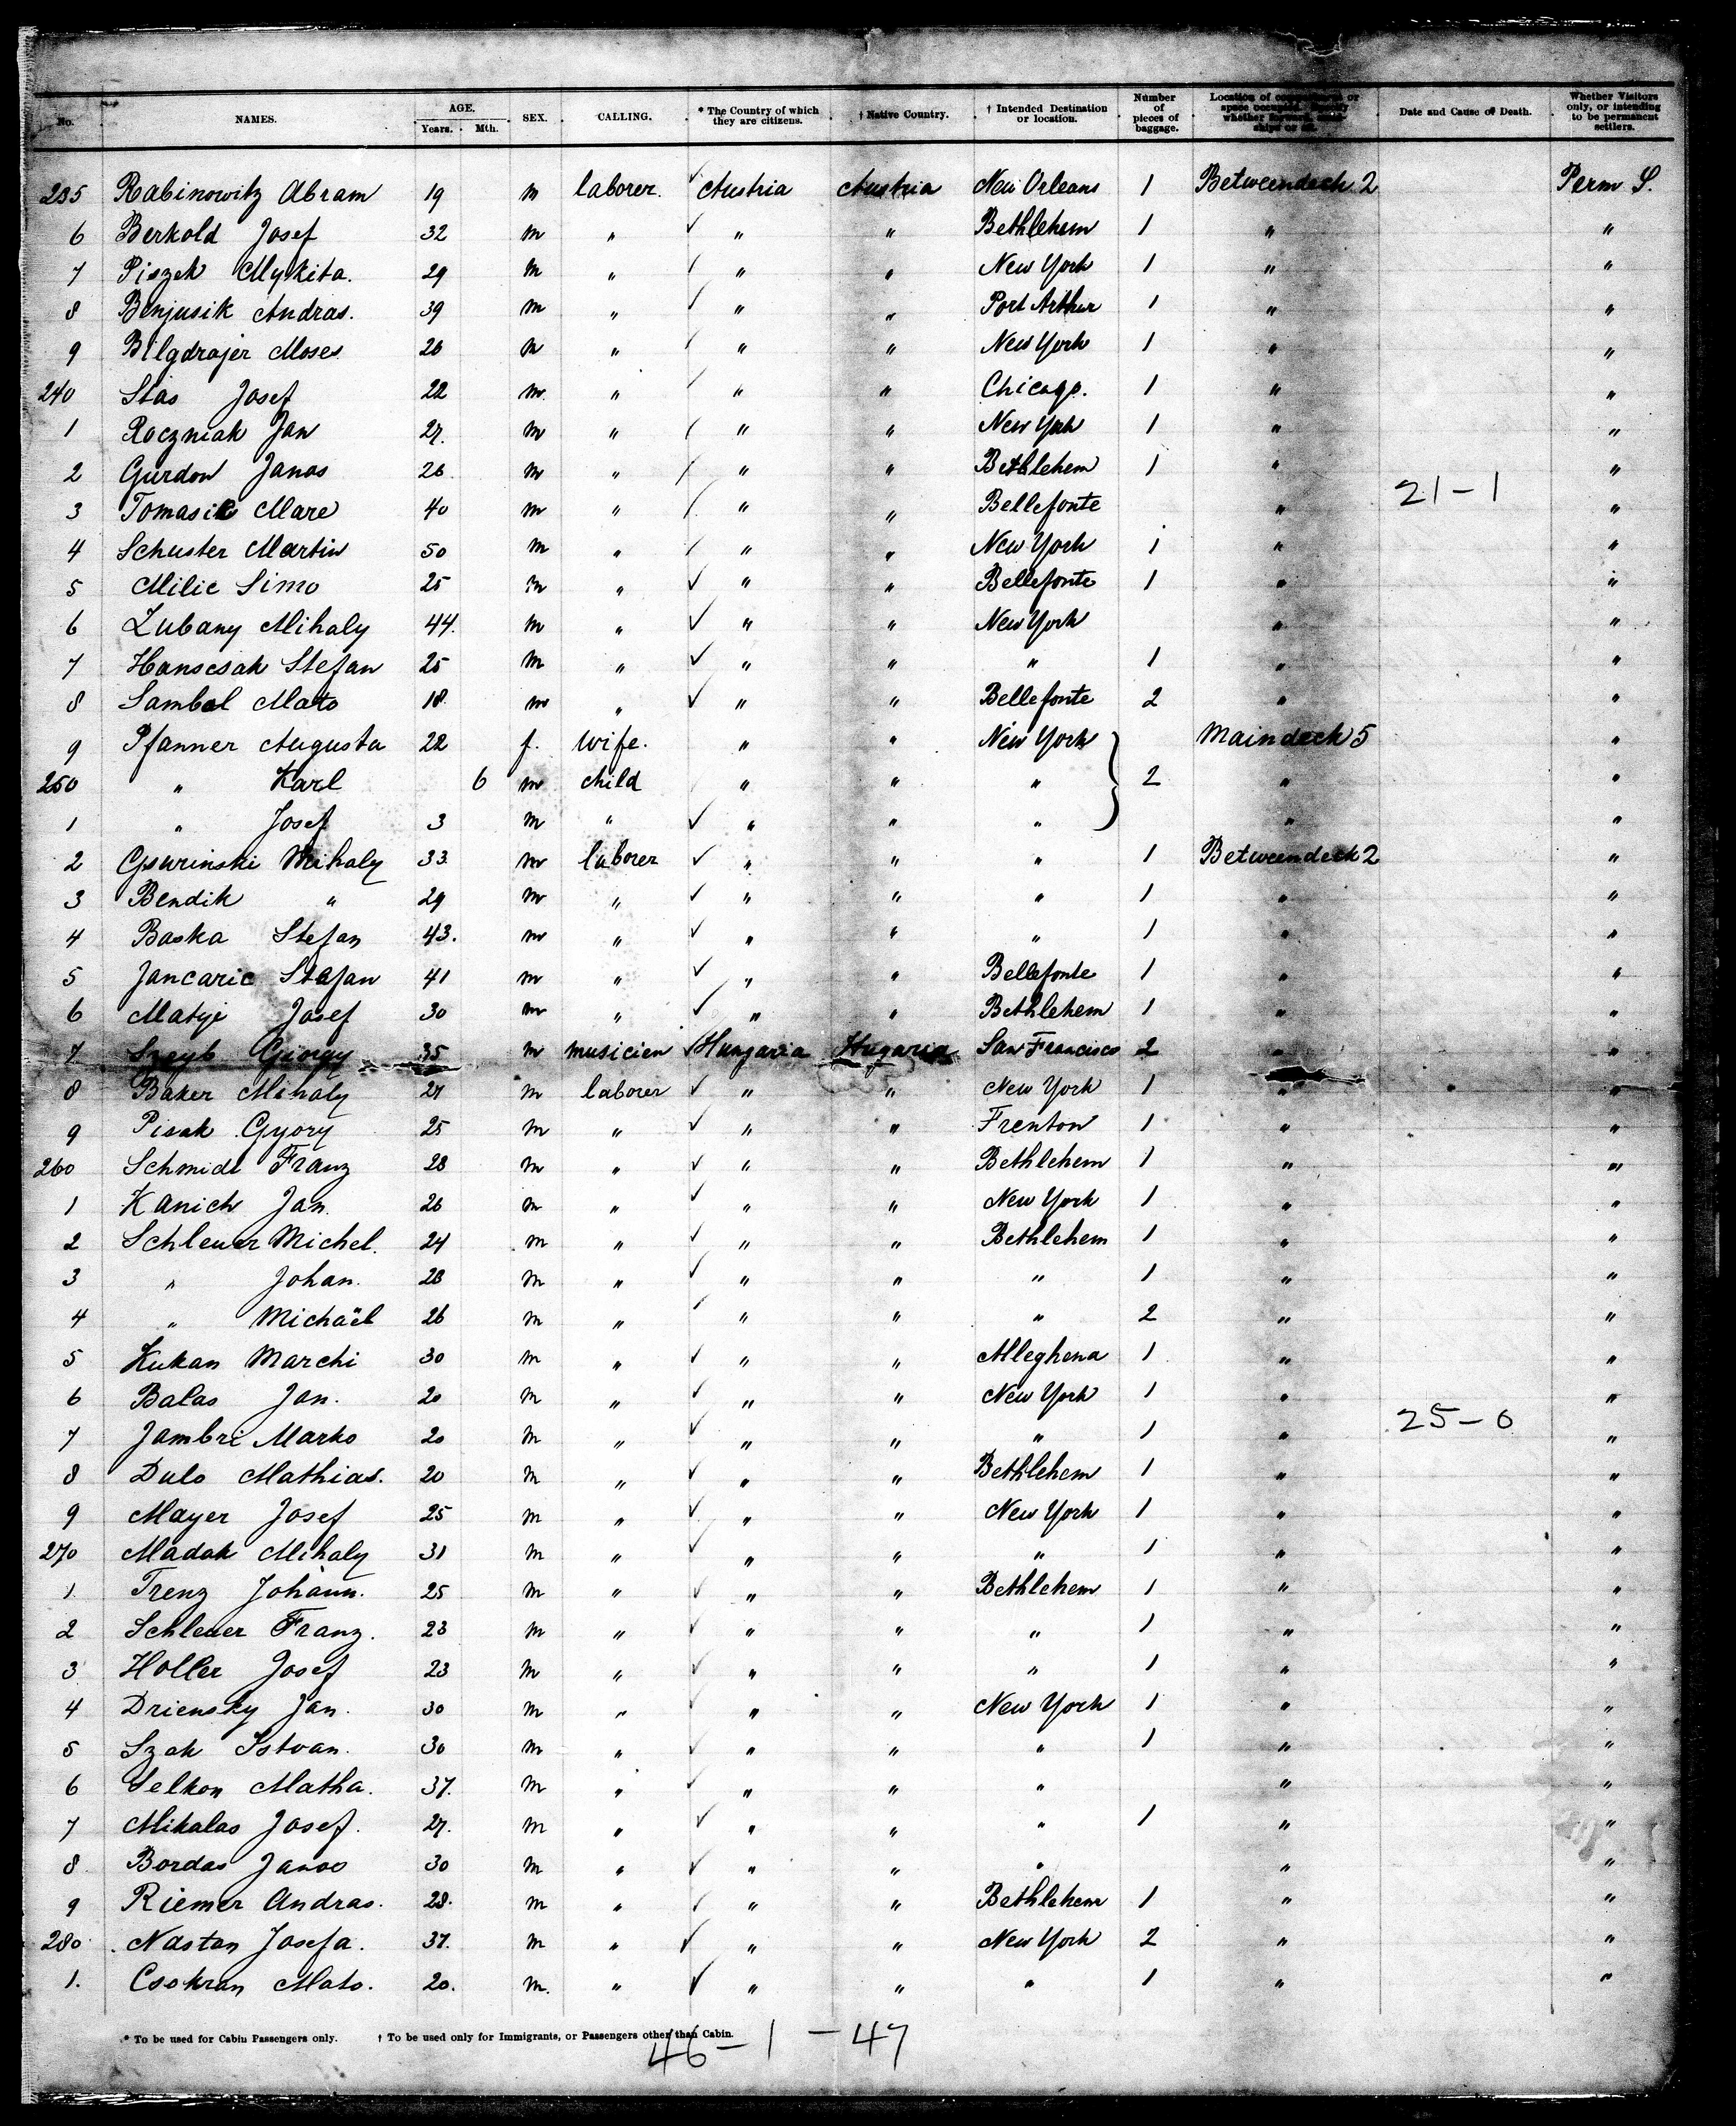 No. NAMES. AGE. Years. Mth. SEX. CALLING. * The Country of which they are citizens. † Native Country. † Intended Destination or location. Number of pieces of baggage. Location of compartment or space occupied. whether forward, ships or Date and Cause of Death. Whether Visitors only, or intending to be permanent settlers.
235 Rabinowitz Abram 19 m laborer. Austria Austria New Orleans 1 Betweendeck 2 Perm S.
6 Berkold Josef 32 m " " " Bethlehem 1 " "
7 Piszek Mykita. 29 m " " " New York 1 " "
8 Benjusik Andras. 39 m " " " Port Arthur 1 " "
9 Bilgdrajer Moses 26 m " " " New York 1 " "
240 Stas Josef 22 m. " " " Chicago. 1 " "
1 Roczniak Jan 27. m " " " New York 1 " "
2 Gurdon Janos 26. m " " " Bethlehem 1 " "
21-1
3 Tomasic Mare 40 m " " " Bellefonte " "
4 Schuster Martin 50 m " " " New York 1 " "
5 Milic Simo 25 m " " " Bellefonte 1 " "
6 Lubany Mihaly 44. m " " " New York " "
7 Hanscsak Stefan 25 m " " " " 1 " "
8 Sambol Mato 18. m " " " Bellefonte 2 " "
9 Pfanner Augusta 22 f. wife. " " New York Maindeck 5 "
250 " Karl 6 m child " " " 2 " "
1 " Josef 3 m " " " " " "
2 Gsurinski Mihaly 33 m laborer " " " 1 Betweendeck 2 "
3 Bendik " 29 m " " " " 1 " "
4 Baska Stefan 43. m " " " " 1 " "
5 Jancaric Stefan 41 m " " " Bellefonte 1 " "
6 Matye Josef 30 m " " " Bethlehem 1 " "
7 Gyorgy 35 m musicien Hungaria Hugaria San Francisco 2 " "
8 Baker Mihaly 27 m laborer " " New York 1 " "
9 Pisak Gyory 25 m " " " Frenton 1 " "
260 Schmidt Franz 28 m " " " Bethlehem 1 " "
1 Kanich Jan 26 m " " " New York 1 " "
2 Schleuer Michel. 24 m " " " Bethlehem 1 " "
3 " Johan. 28 m " " " " 1 " "
4 " Michaël 26 m " " " " 2 " "
5 Kukan Marchi 30 m " " " Alleghena 1 " "
6 Balas Jan. 20 m " " " New York 1 " "
25-0
7 Jambri Marko 20 m " " " " 1 " "
8 Dulo Mathias. 20 m " " " Bethlehem 1 " "
9 Mayer Josef 25 m " " " New York 1 " "
270 Madak Mihaly 31 m " " " " 1 " "
1. Trenz Johann. 25 m " " " Bethlehem 1 " "
2 Schleuer Franz. 23 m " " " " 1 " "
3 Holler Josef 23 m " " " " 1 " "
4 Driensky Jan. 30 m " " " New York 1 " "
5 Szak Istvan. 30 m " " " " 1 " "
6 Selkon Matha. 37. m " " " " " "
7 Mikalas Josef. 27. m " " " " 1 " "
8 Bordas Janos 30 m " " " " " "
9 Riemer Andras. 28. m " " " Bethlehem 1 " "
280 Nastan Josefa. 37. m " " " New York 2 " "
1. Csokran Mato. 20. m. " " " " 1 " "
* To be used for Cabin Passengers only. † To be used only for Immigrants, or Passengers other than Cabin.
46-1-47